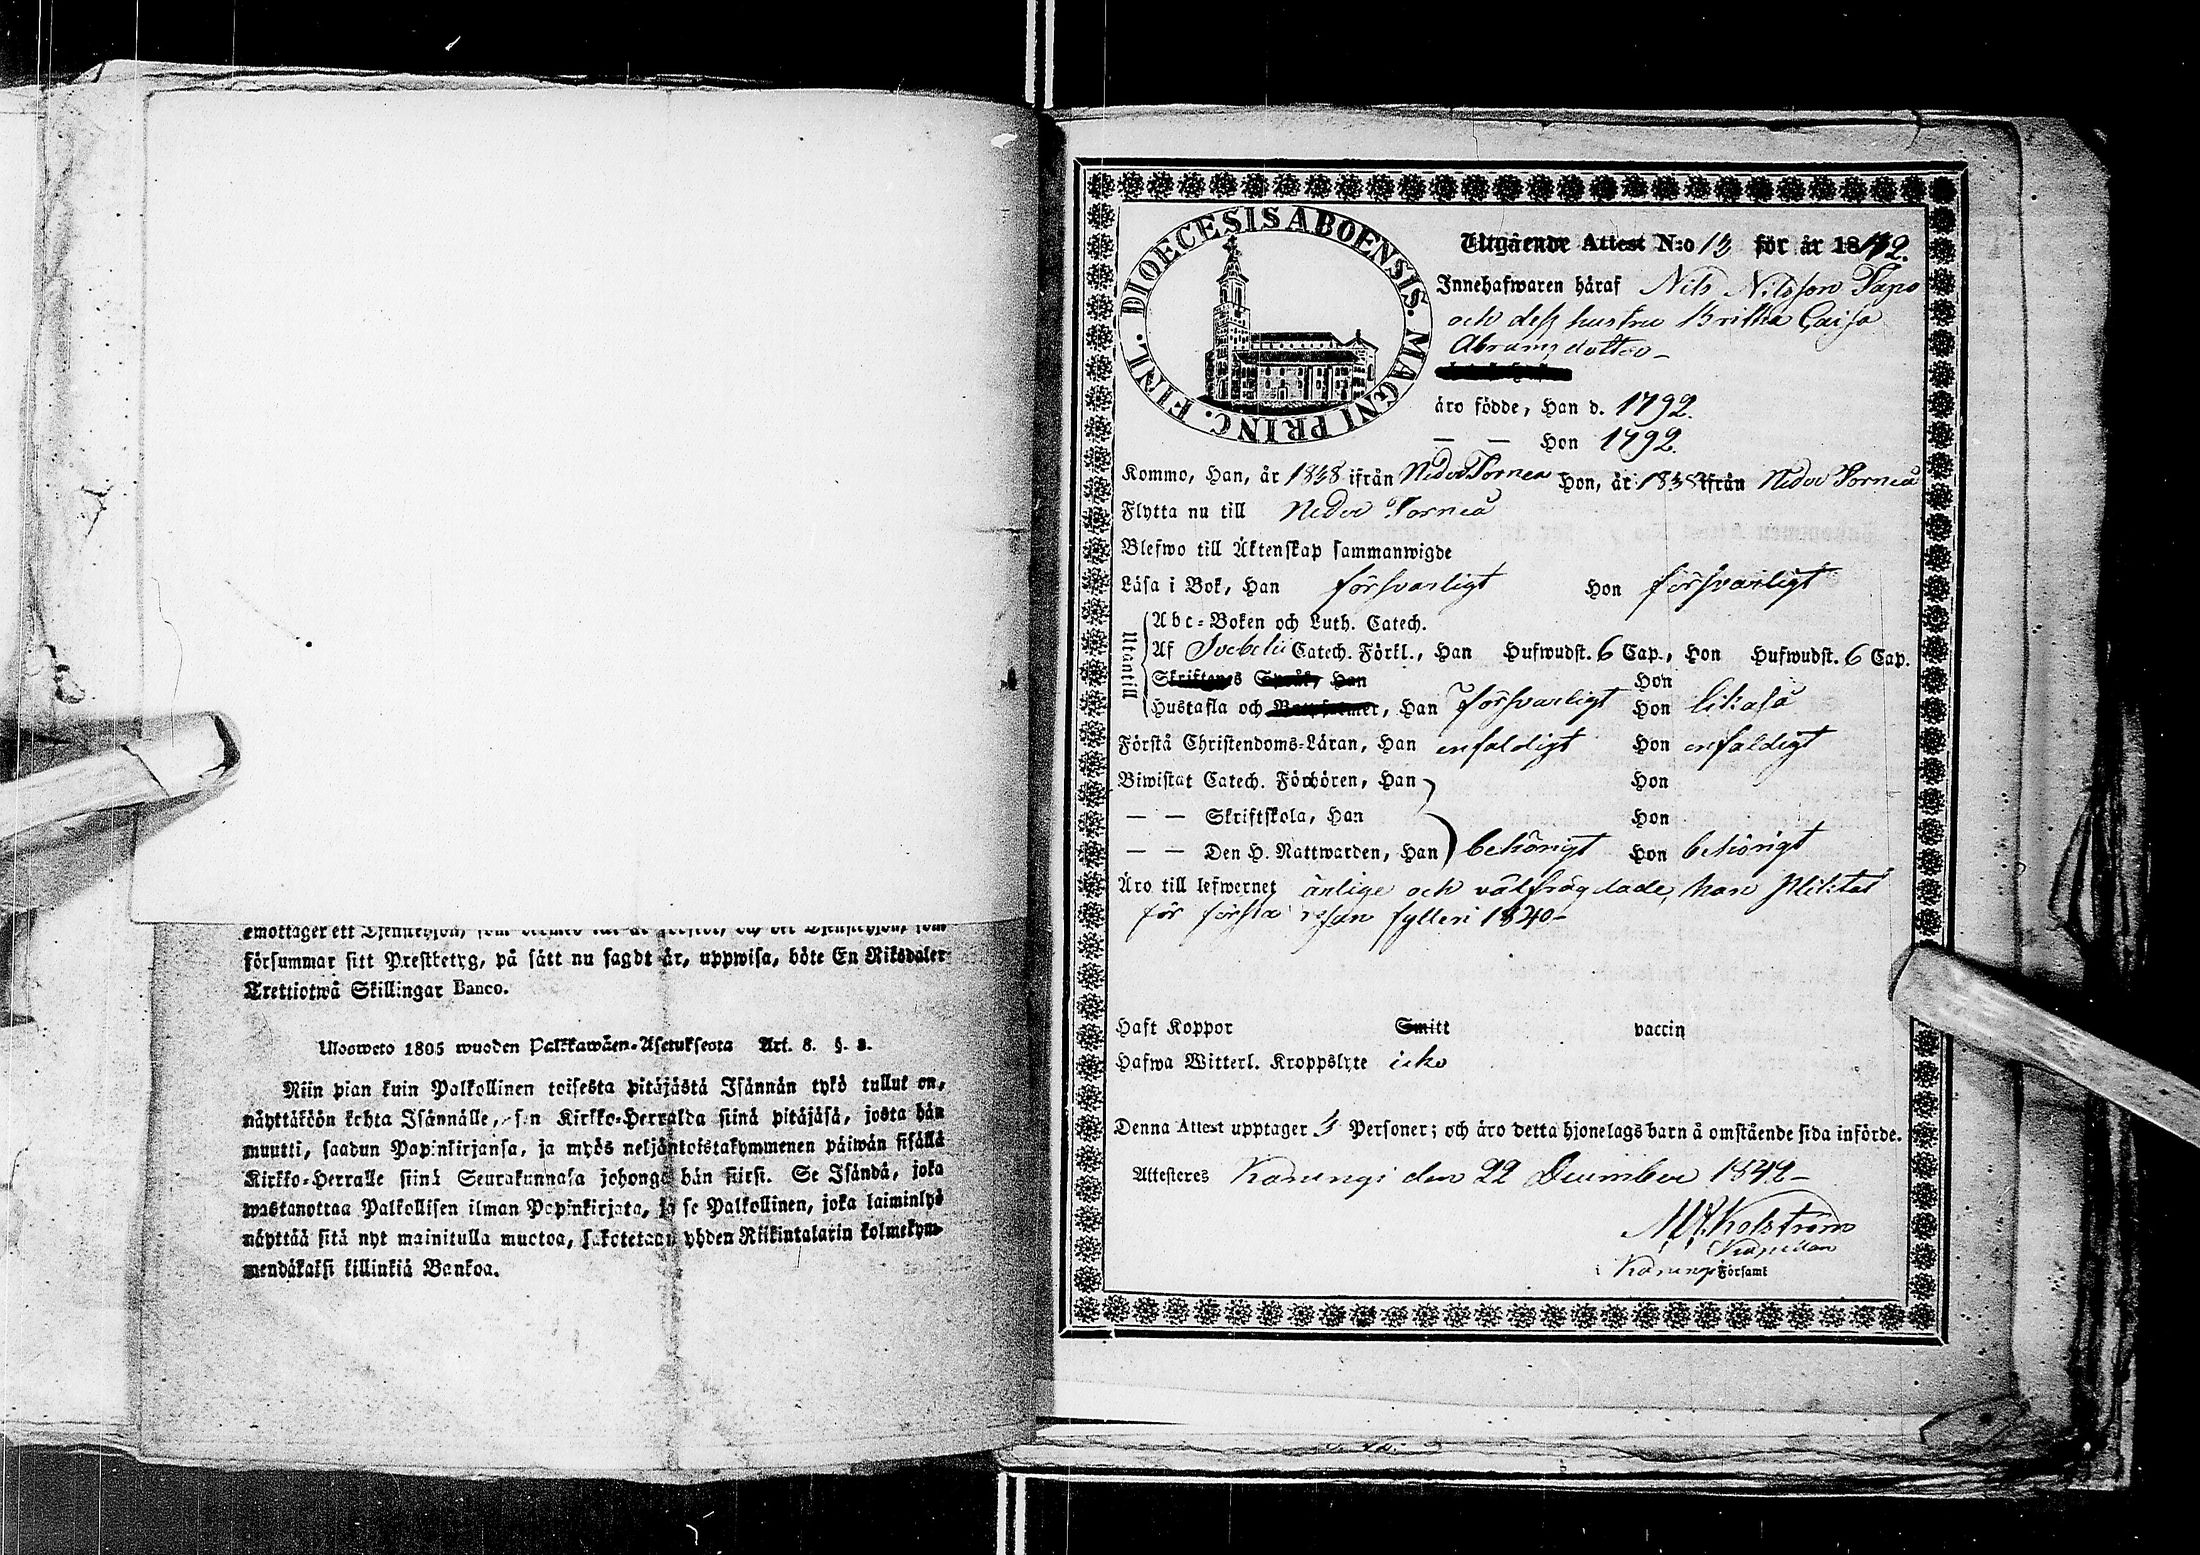 försummar sitt Prestbetyg, på sätt nu sagdt är, uppwisa, böte En Riksdaler
Trettiotwå Skillingar Banco.
Ulosweto 1805 wuoden Palkkawäen-Asetuksesta Art. 8. §. 2.
Niin pian kuin Palkollinen toisesta pitäjästä Isännän tykö tullut on,
näyttäköön kohta Isännälle, sen Kirkko-Herralda siinä pitäjäsä, josta hän
muutti, saadun Papinkirjansa, ja myös neljäntoistakymmenen päiwän sisällä
Kirkko-Herralle siinä Seurakunnasa johonga hän siirsi. Se Isändä, joka
wastanottaa Palkollisen ilman Papinkirjata, ja se Palkollinen, joka laiminlyö
näyttää sitä nyt mainitulla muotoa, sakotetaan yhden Riikintalarin kolmekym-
mendäkaksi killinkiä Bankoa.
DIOECESIS ABOENSIS. MAGNI PRINC. FINL.
Utgående Attest N:o 13 för år 1842.
Innehafwaren häraf Nils Nilsson Tapo
och dess hustru Britha Caisa
Abramsdotter
äro födde, Han d. 1792.
— — Hon 1792.
Kommo, Han, år 1838 ifrån Neder Tornea Hon, år 1838 ifrån Neder Torneå
Flytta nu till Neder Torneå
Blefwo till Äktenskap sammanwigde
Läsa i Bok, Han försvarligt Hon försvarligt
Utantill
Abc-Boken och Luth. Catech.
Af Svebelii Catech. Förkl., Han Hufwudst. 6 Cap., Hon Hufwudst. 6 Cap.
Skriftenes Språk, Han Hon
Hustafla och Bot-psalmer, Han försvarligt Hon likaså
Förstå Christendoms-Läran, Han enfaldigt Hon enfaldigt
Biwistat Catech. Förhören, Han Hon
— — Skriftskola, Han Hon
— — Den H. Nattwarden, Han behörigt Hon behörigt
Äro till lefwernet ärlige och välfrägdade, han pliktat
för första resan fylleri 1840–
Haft Koppor Smitt vaccin
Hafwa Witterl. Kroppslyte icke
Denna Attest upptager 3 Personer; och äro detta hjonelags barn å omstående sida införde.
Attesteres Karungi den 22 December 1842–
Kolström
i Karungi Församl